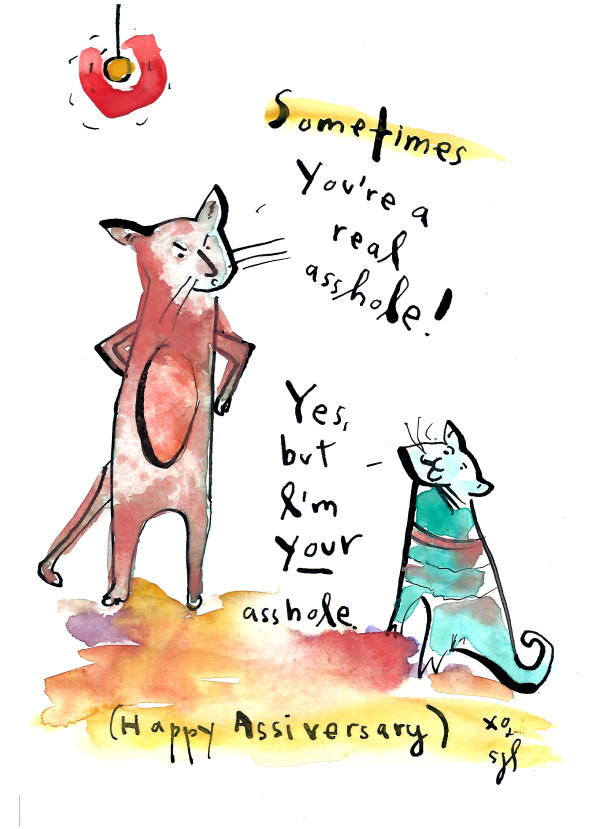 Sometimes
You're a
real
asshole!
Yes,
but
I'm
your
asshole.
(Happy Assiversary)
xo,
sgl